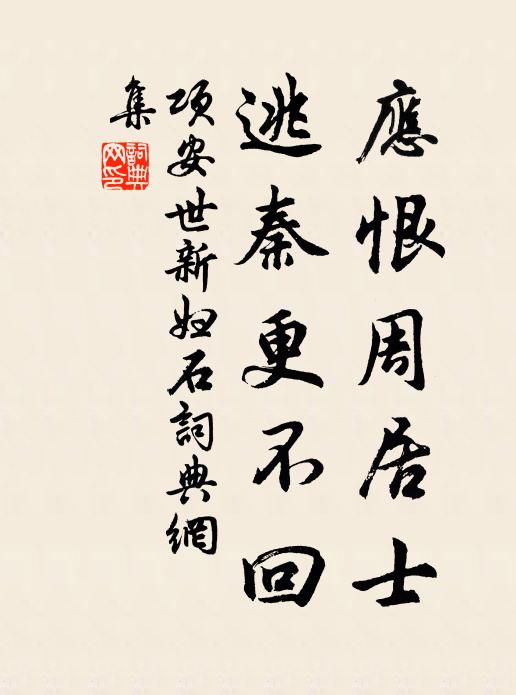 應恨周居士
逃秦更不回
項安世新婦石詞典網
集
詞典網印